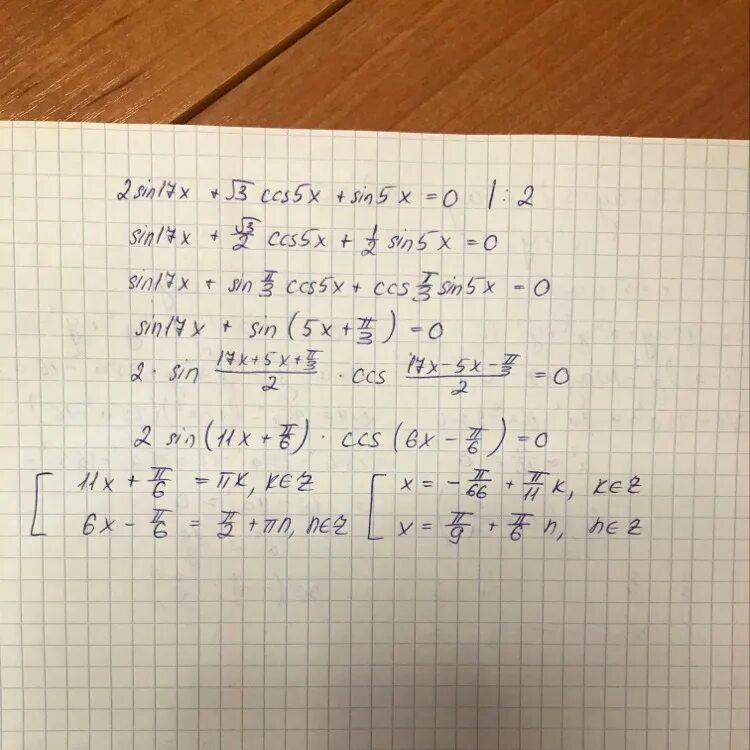 2sin17x + √3 cos5x + sin5x = 0 | : 2
sin17x + √3/2 cos5x + 1/2 sin5x = 0
sin17x + sin π/3 cos5x + cos π/3 sin5x = 0
sin17x + sin (5x + π/3) = 0
2 · sin (17x+5x+π/3)/2 · cos (17x-5x-π/3)/2 = 0
2 sin(11x + π/6) · cos (6x - π/6) = 0
[ 11x + π/6 = πk, k∈Z [ x = - π/66 + π/11 k, k∈Z
6x - π/6 = π/2 + πn, n∈Z x = π/9 + π/6 n, n∈Z